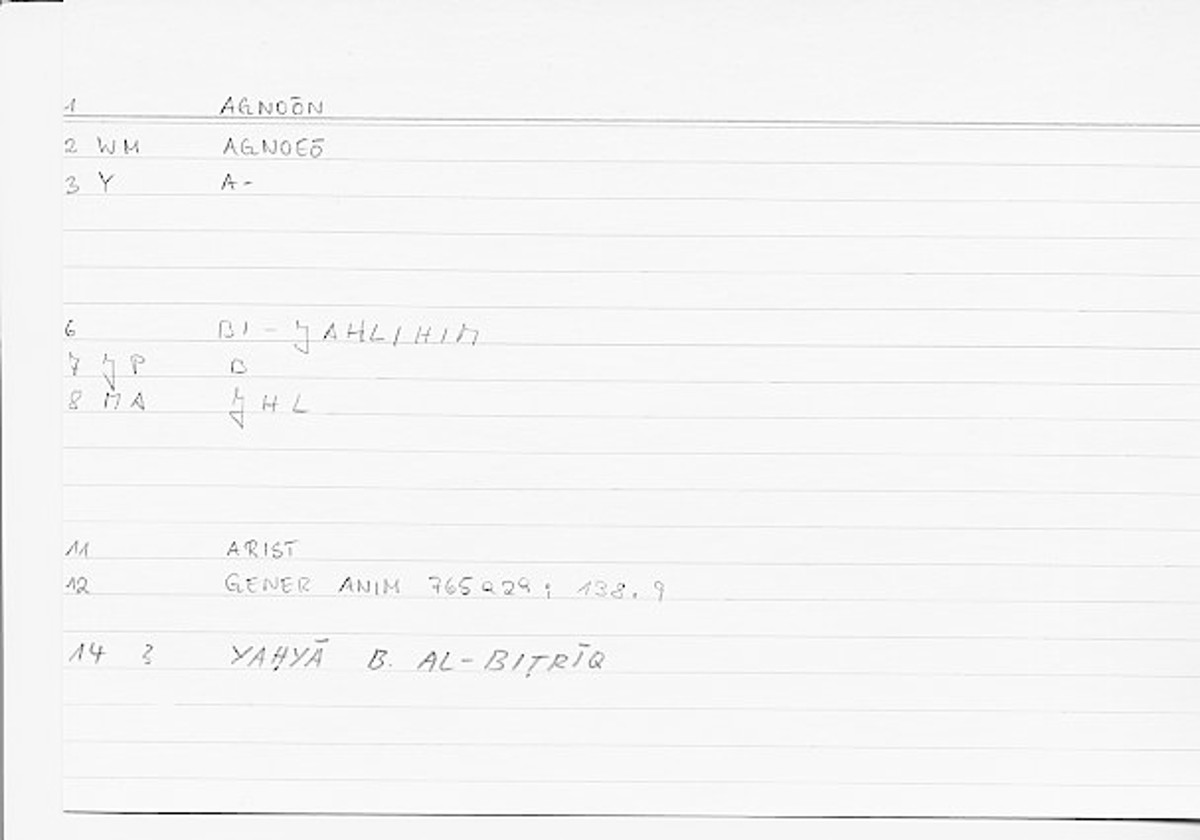 1 AGNOŌN
2 WM AGNOEŌ
3 Y A-
6 BI-JAHLIHIM
7 JP B
8 MA JHL
11 ARIST
12 GENER ANIM 765a29; 138.9
14 3 YAḤYĀ B. AL-BIṬRĪQ